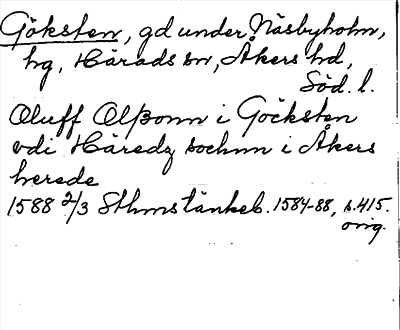 Göksten, gd under Näsbyholm,
hg, Härads sn, Åkers hd,
Söd. l.
Oluff Olßonn i Göcksten
vdi Häredz sochnn i Åkers
herede
1588 2/3 Sthms tänkeb. 1584-88, s. 415.
orig.